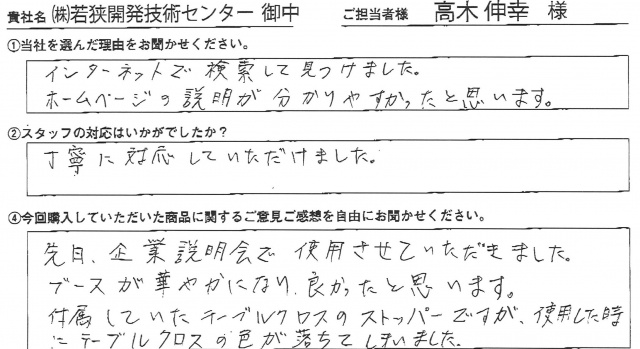 貴社名 ㈱若狭開発技術センター 御中 ご担当者様 高木 伸幸 様
①当社を選んだ理由をお聞かせください。
インターネットで検索して見つけました。
ホームページの説明が分かりやすかったと思います。
②スタッフの対応はいかがでしたか?
丁寧に対応していただけました。
④今回購入していただいた商品に関するご意見ご感想を自由にお聞かせください。
先日、企業説明会で使用させていただきました。
ブースが華やかになり、良かったと思います。
付属していたテーブルクロスのストッパーですが、使用した時
にテーブルクロスの色が落ちてしまいました。